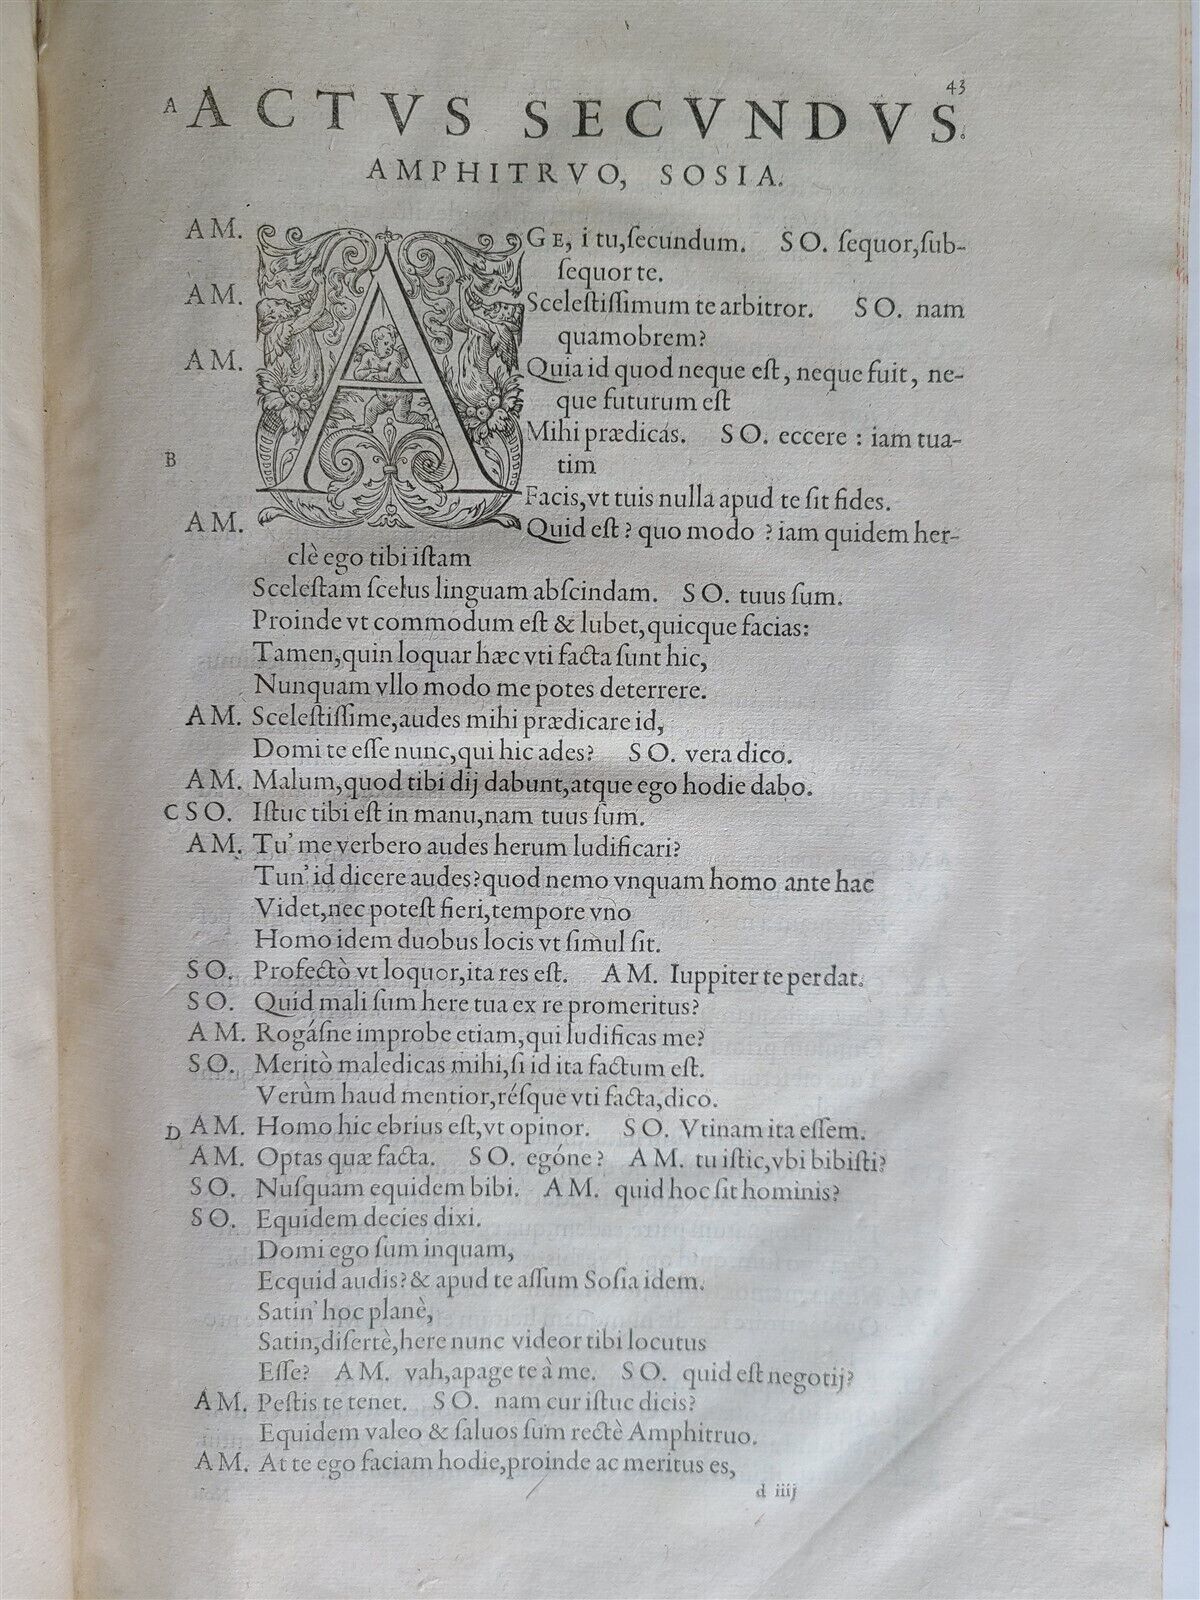 43
A ACTVS SECVNDVS.
AMPHITRVO, SOSIA.
AM. AGE, i tu,ſecundum. SO. ſequor,ſub-
ſequor te.
AM. Sceleſtiſſimum te arbitror. SO. nam
quamobrem?
AM. Quia id quod neque eſt, neque fuit, ne-
que futurum eſt
Mihi prædicas. SO. eccere : iam tua-
B tim
Facis,vt tuis nulla apud te ſit fides.
AM. Quid eſt? quo modo ? iam quidem her-
clè ego tibi iſtam
Sceleſtam ſcelus linguam abſcindam. SO. tuus ſum.
Proinde vt commodum eſt & lubet,quicque facias:
Tamen,quin loquar hæc vti facta ſunt hic,
Nunquam vllo modo me potes deterrere.
AM. Sceleſtiſſime,audes mihi prædicare id,
Domi te eſſe nunc,qui hic ades? SO. vera dico.
AM. Malum,quod tibi dij dabunt,atque ego hodie dabo.
C SO. Iſtuc tibi eſt in manu,nam tuus ſum.
AM. Tu' me verbero audes herum ludificari?
Tun' id dicere audes?quod nemo vnquam homo ante hac
Videt,nec poteſt fieri,tempore vno
Homo idem duobus locis vt ſimul ſit.
SO. Profectò vt loquor,ita res eſt. AM. Iuppiter te perdat.
SO. Quid mali ſum here tua ex re promeritus?
AM. Rogáſne improbe etiam,qui ludificas me?
SO. Meritò maledicas mihi,ſi id ita factum eſt.
Verùm haud mentior,réſque vti facta,dico.
D AM. Homo hic ebrius eſt,vt opinor. SO. Vtinam ita eſſem.
AM. Optas quæ facta. SO. egóne? AM. tu iſtic,vbi bibiſti?
SO. Nuſquam equidem bibi. AM. quid hoc ſit hominis?
SO. Equidem decies dixi.
Domi ego ſum inquam,
Ecquid audis?& apud te aſſum Soſia idem.
Satin' hoc planè,
Satin,diſertè,here nunc videor tibi locutus
Eſſe? AM. vah,apage te à me. SO. quid eſt negotij?
AM. Peſtis te tenet. SO. nam cur iſtuc dicis?
Equidem valeo & ſaluos ſum rectè Amphitruo.
AM. At te ego faciam hodie,proinde ac meritus es,
d iiij